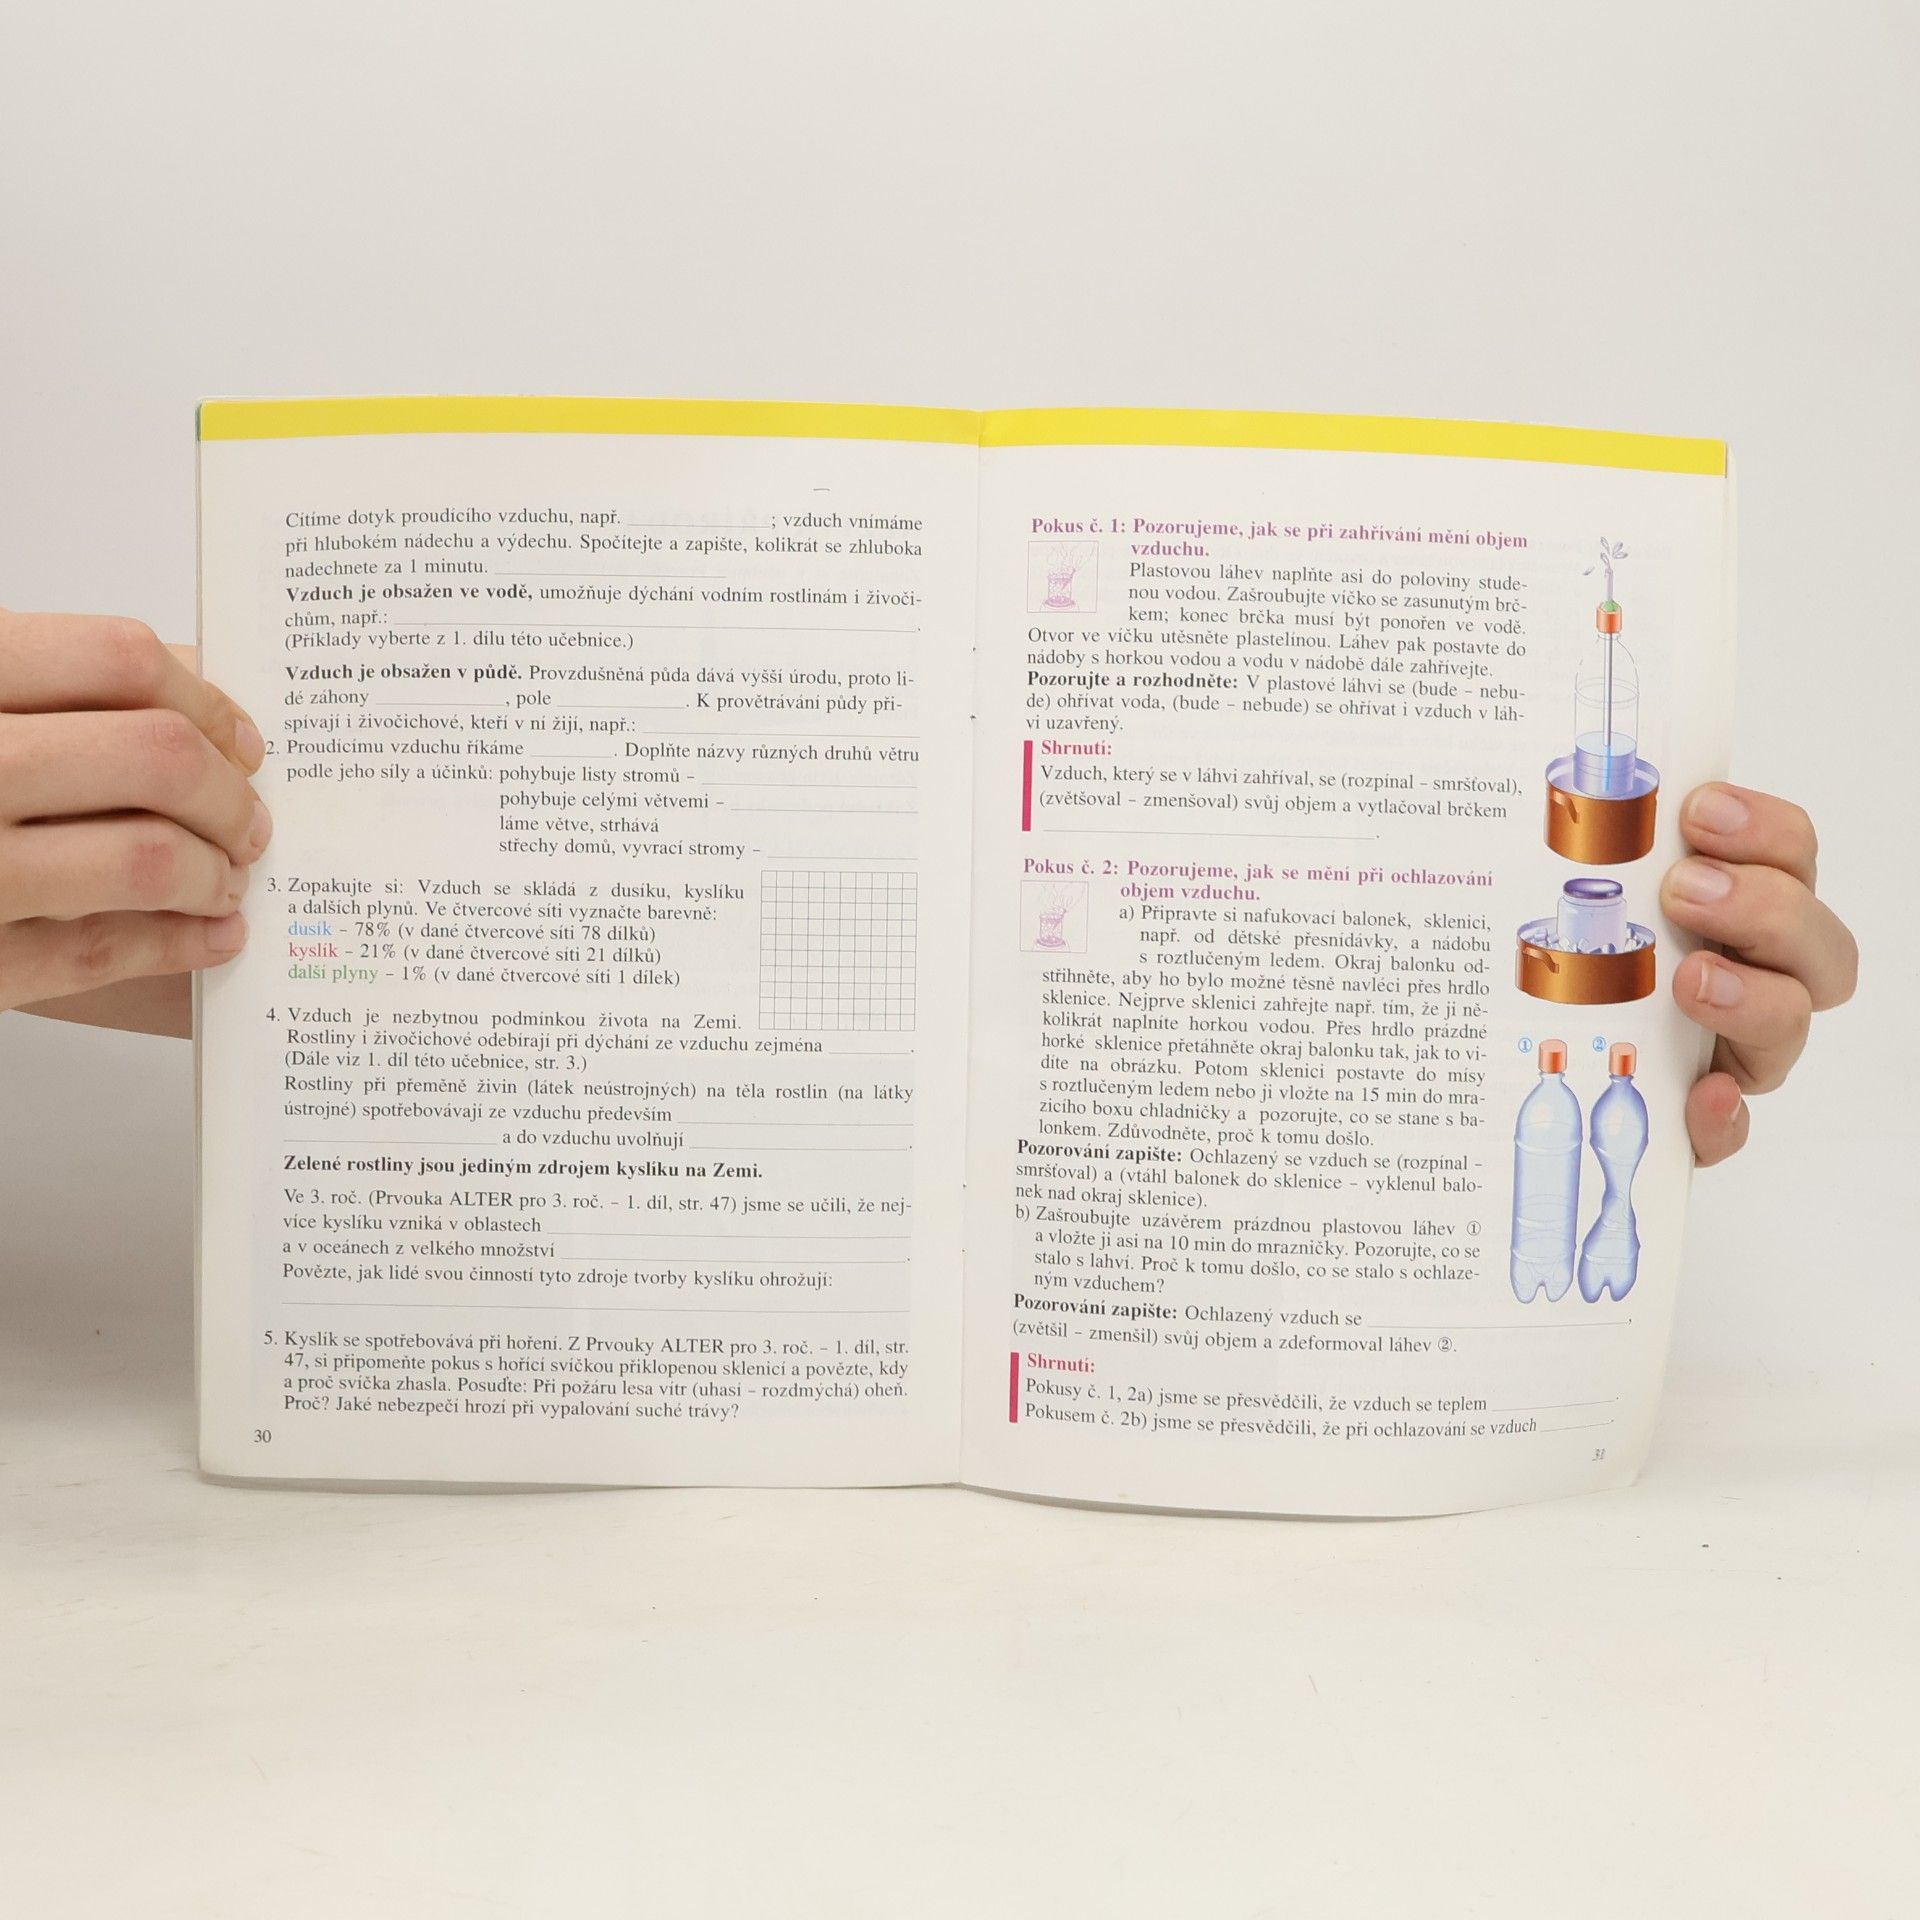 Cítíme dotyk proudícího vzduchu, např. ____________; vzduch vnímáme
při hlubokém nádechu a výdechu. Spočítejte a zapište, kolikrát se zhluboka
nadechnete za 1 minutu. ____________
Vzduch je obsažen ve vodě, umožňuje dýchání vodním rostlinám i živoči-
chům, např.: ____________.
(Příklady vyberte z 1. dílu této učebnice.)
Vzduch je obsažen v půdě. Provzdušněná půda dává vyšší úrodu, proto li-
dé záhony ____________, pole ____________. K provětrávání půdy při-
spívají i živočichové, kteří v ní žijí, např.: ____________
2. Proudícímu vzduchu říkáme ________. Doplňte názvy různých druhů větru
podle jeho síly a účinků: pohybuje listy stromů – ____________
pohybuje celými větvemi – ____________
láme větve, strhává
střechy domů, vyvrací stromy – ____________
3. Zopakujte si: Vzduch se skládá z dusíku, kyslíku
a dalších plynů. Ve čtvercové síti vyznačte barevně:
dusík – 78% (v dané čtvercové síti 78 dílků)
kyslík – 21% (v dané čtvercové síti 21 dílků)
další plyny – 1% (v dané čtvercové síti 1 dílek)
4. Vzduch je nezbytnou podmínkou života na Zemi.
Rostliny i živočichové odebírají při dýchání ze vzduchu zejména ________.
(Dále viz 1. díl této učebnice, str. 3.)
Rostliny při přeměně živin (látek neústrojných) na těla rostlin (na látky
ústrojné) spotřebovávají ze vzduchu především ____________
____________ a do vzduchu uvolňují ____________.
Zelené rostliny jsou jediným zdrojem kyslíku na Zemi.
Ve 3. roč. (Prvouka ALTER pro 3. roč. – 1. díl, str. 47) jsme se učili, že nej-
více kyslíku vzniká v oblastech ____________
a v oceánech z velkého množství ____________.
Povězte, jak lidé svou činností tyto zdroje tvorby kyslíku ohrožují:
____________
5. Kyslík se spotřebovává při hoření. Z Prvouky ALTER pro 3. roč. – 1. díl, str.
47, si připomeňte pokus s hořící svíčkou přiklopenou sklenicí a povězte, kdy
a proč svíčka zhasla. Posuďte: Při požáru lesa vítr (uhasí – rozdmýchá) oheň.
Proč? Jaké nebezpečí hrozí při vypalování suché trávy?
30
Pokus č. 1: Pozorujeme, jak se při zahřívání mění objem
vzduchu.
Plastovou láhev naplňte asi do poloviny stude-
nou vodou. Zašroubujte víčko se zasunutým brč-
kem; konec brčka musí být ponořen ve vodě.
Otvor ve víčku utěsněte plastelínou. Láhev pak postavte do
nádoby s horkou vodou a vodu v nádobě dále zahřívejte.
Pozorujte a rozhodněte: V plastové láhvi se (bude – nebu-
de) ohřívat voda, (bude – nebude) se ohřívat i vzduch v láh-
vi uzavřený.
Shrnutí:
Vzduch, který se v láhvi zahříval, se (rozpínal – smršťoval),
(zvětšoval – zmenšoval) svůj objem a vytlačoval brčkem
____________.
Pokus č. 2: Pozorujeme, jak se mění při ochlazování
objem vzduchu.
a) Připravte si nafukovací balonek, sklenici,
např. od dětské přesnídávky, a nádobu
s roztlučeným ledem. Okraj balonku od-
střihněte, aby ho bylo možné těsně navléci přes hrdlo
sklenice. Nejprve sklenici zahřejte např. tím, že ji ně-
kolikrát naplníte horkou vodou. Přes hrdlo prázdné
horké sklenice přetáhněte okraj balonku tak, jak to vi-
díte na obrázku. Potom sklenici postavte do mísy
s roztlučeným ledem nebo ji vložte na 15 min do mra-
zicího boxu chladničky a pozorujte, co se stane s ba-
lonkem. Zdůvodněte, proč k tomu došlo.
Pozorování zapište: Ochlazený se vzduch se (rozpínal –
smršťoval) a (vtáhl balonek do sklenice – vyklenul balo-
nek nad okraj sklenice).
b) Zašroubujte uzávěrem prázdnou plastovou láhev ①
a vložte ji asi na 10 min do mrazničky. Pozorujte, co se
stalo s lahví. Proč k tomu došlo, co se stalo s ochlaze-
ným vzduchem?
Pozorování zapište: Ochlazený vzduch se ____________,
(zvětšil – zmenšil) svůj objem a zdeformoval láhev ②.
Shrnutí:
Pokusy č. 1, 2a) jsme se přesvědčili, že vzduch se teplem ____________.
Pokusem č. 2b) jsme se přesvědčili, že při ochlazování se vzduch ________.
① ②
31